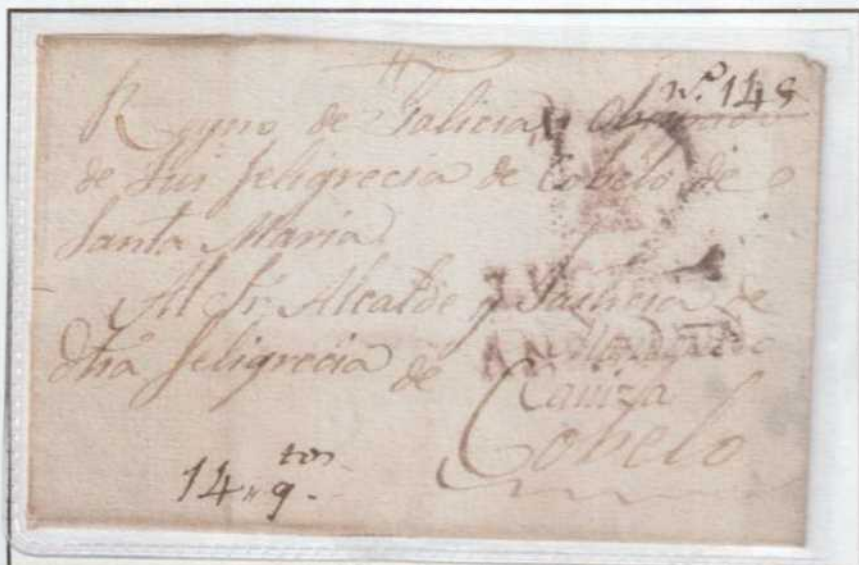 nº. 148
Reyno de Galicia
de Tui feligrecia de Cobelo de
Santa Maria
Al Sr. Alcalde y Justicia de
dha feligrecia de
Cañiza
Cobelo
14 " qtos.